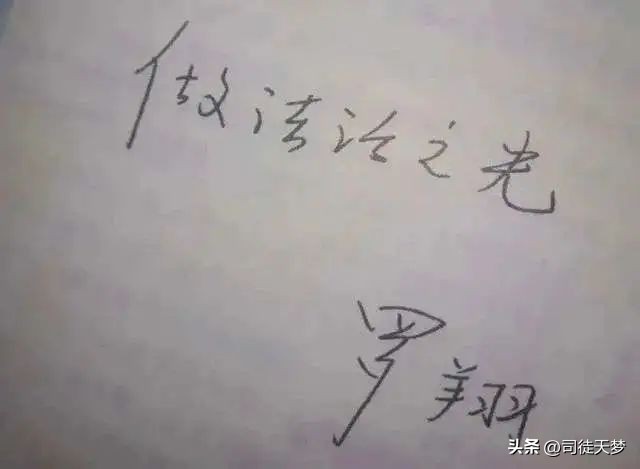 做法治之光
罗翔
头条 @司徒天梦